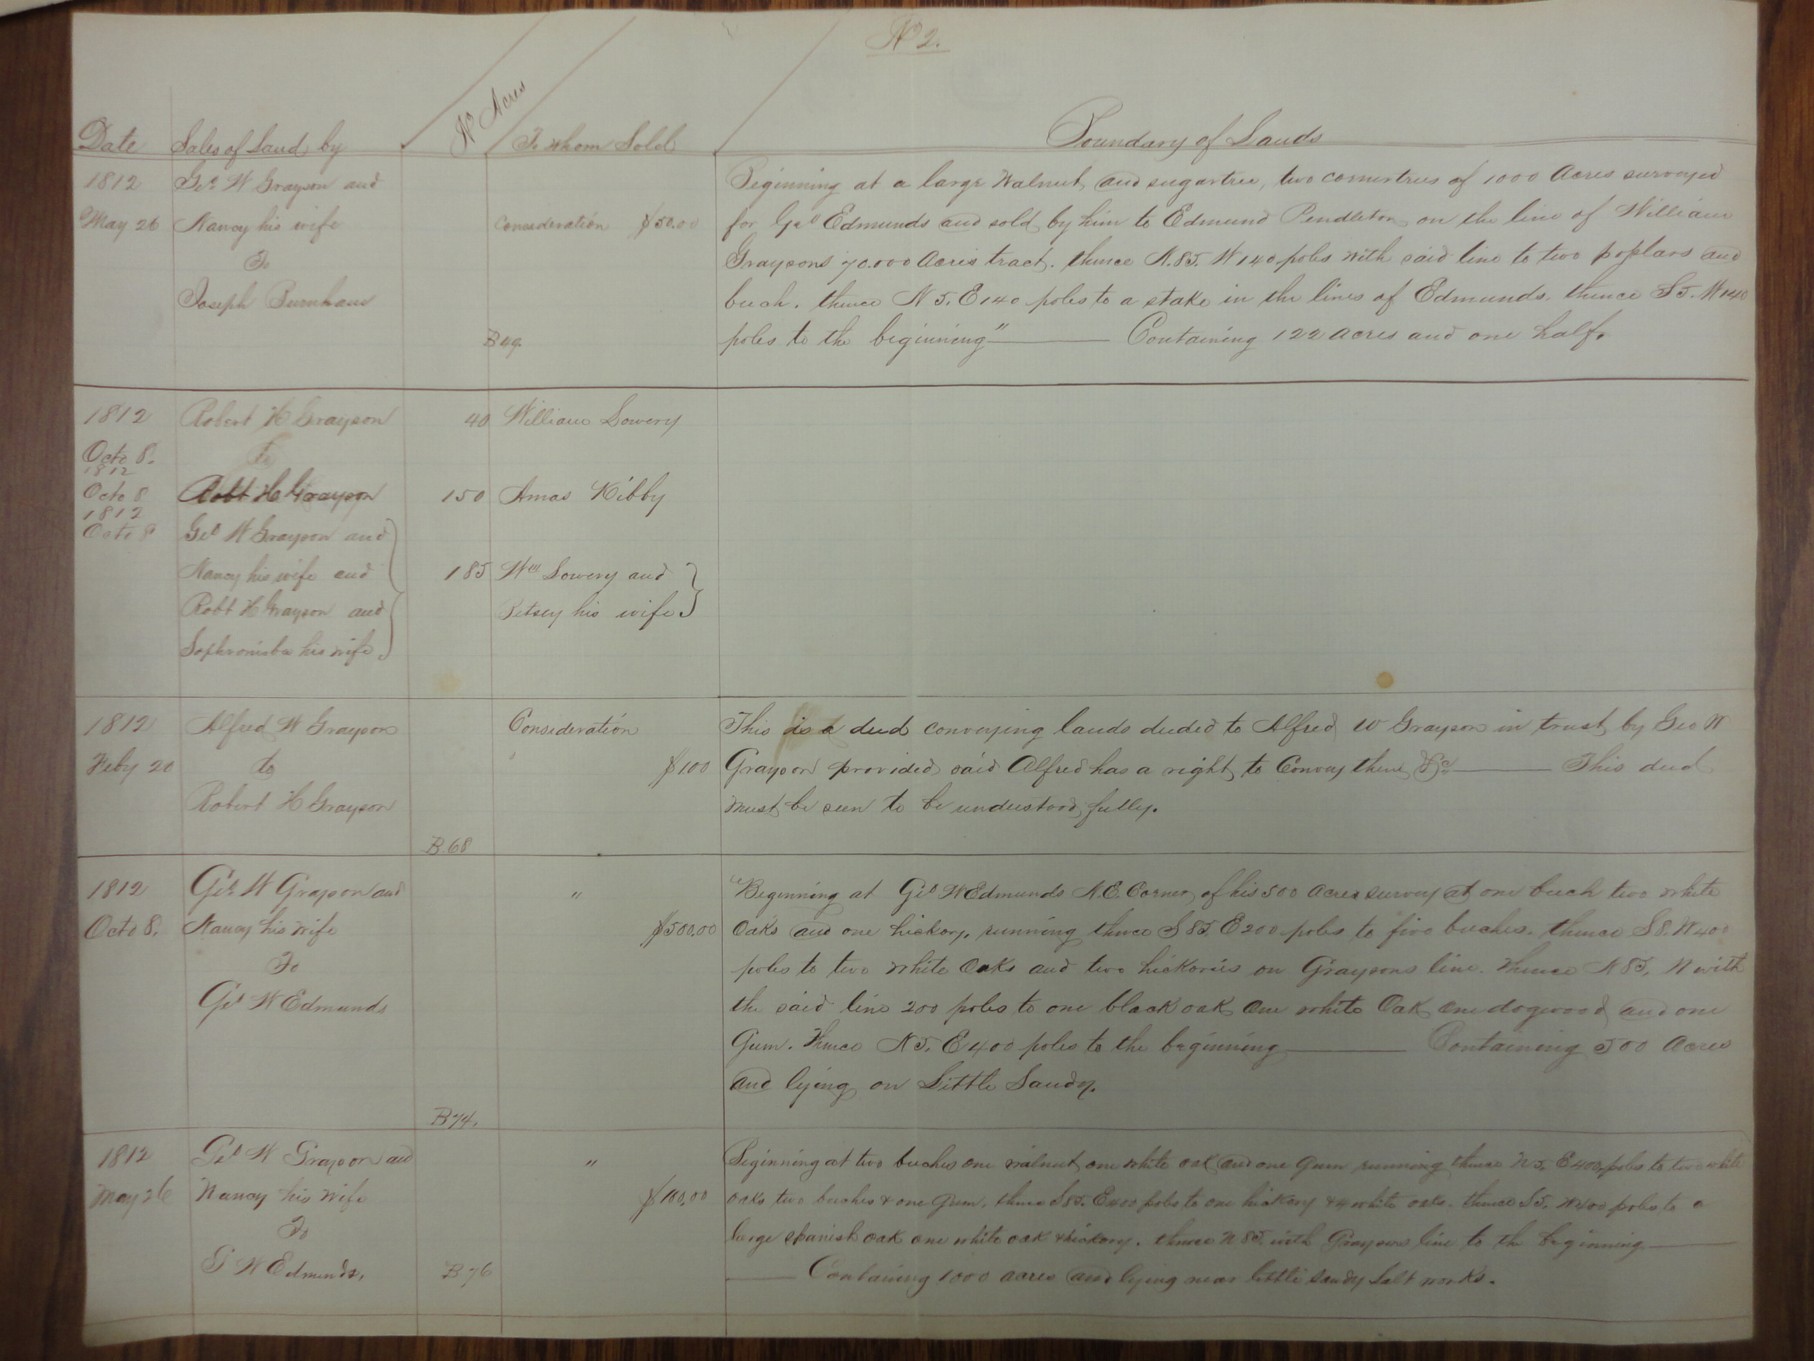 No 2.
Date Sales of Land by No Acres To whom Sold Boundary of Lands
1812 Geo W Grayson and
May 26 Nancy his wife
To
Joseph Burnham
Consideration $50.00
B 49.
Beginning at a large Walnut and sugartree, two cornertrees of 1000 Acres surveyed
for Geo Edmunds and sold by him to Edmund Pendleton on the line of William
Graysons 70.000 Acres tract. thence N.85. W 140 poles with said line to two poplars and
beech. thence N 5. E 140 poles to a stake in the lines of Edmunds. thence S 5. W 140
poles to the beginning" Containing 122 acres and one half.
1812 Robert H Grayson 40 William Lowery
Octo 8. To
1812
Octo 8 Robt H Grayson 150 Amas Kibby
1812
Octo 8 Geo W Grayson and
Nancy his wife and 185 Wm Lowery and
Robt H Grayson and Betsey his wife
Sophronisba his wife
1812 Alfred W Grayson Consideration
Feby 20 to $100
Robert H Grayson
B 68
This is a deed conveying lands deeded to Alfred W Grayson in trust by Geo W
Grayson provided said Alfred has a right to Convey them &c This deed
must be seen to be understood fully.
1812 Geo W Grayson and "
Octo 8. Nancy his wife $500.00
To
Geo W Edmunds
B 74.
"Beginning at Geo W Edmunds N.E. Corner of his 500 Acres survey at one beech two white
Oaks and one hickory, running thence S 85. E 200 poles to five beeches. thence S 8. W 400
poles to two white Oaks and two hickories on Graysons line. thence N 85. W with
the said line 200 poles to one black oak one white Oak one dogwood and one
Gum. thence N 5. E 400 poles to the beginning Containing 500 Acres
and lying on Little Sandy.
1812 Geo W Grayson and "
May 26 Nancy his wife $100.00
To
G W Edmunds, B 76
Beginning at two beeches one walnut one white oak and one Gum running thence N 5. E 400 poles to two white
oaks two beeches & one Gum, thence S 85. E 400 poles to one hickory & 4 white oaks. thence S 5. W 400 poles to a
large spanish oak one white oak & hickory. thence N 85. with Graysons line to the beginning
Containing 1000 acres and lying near little Sandy Salt works.